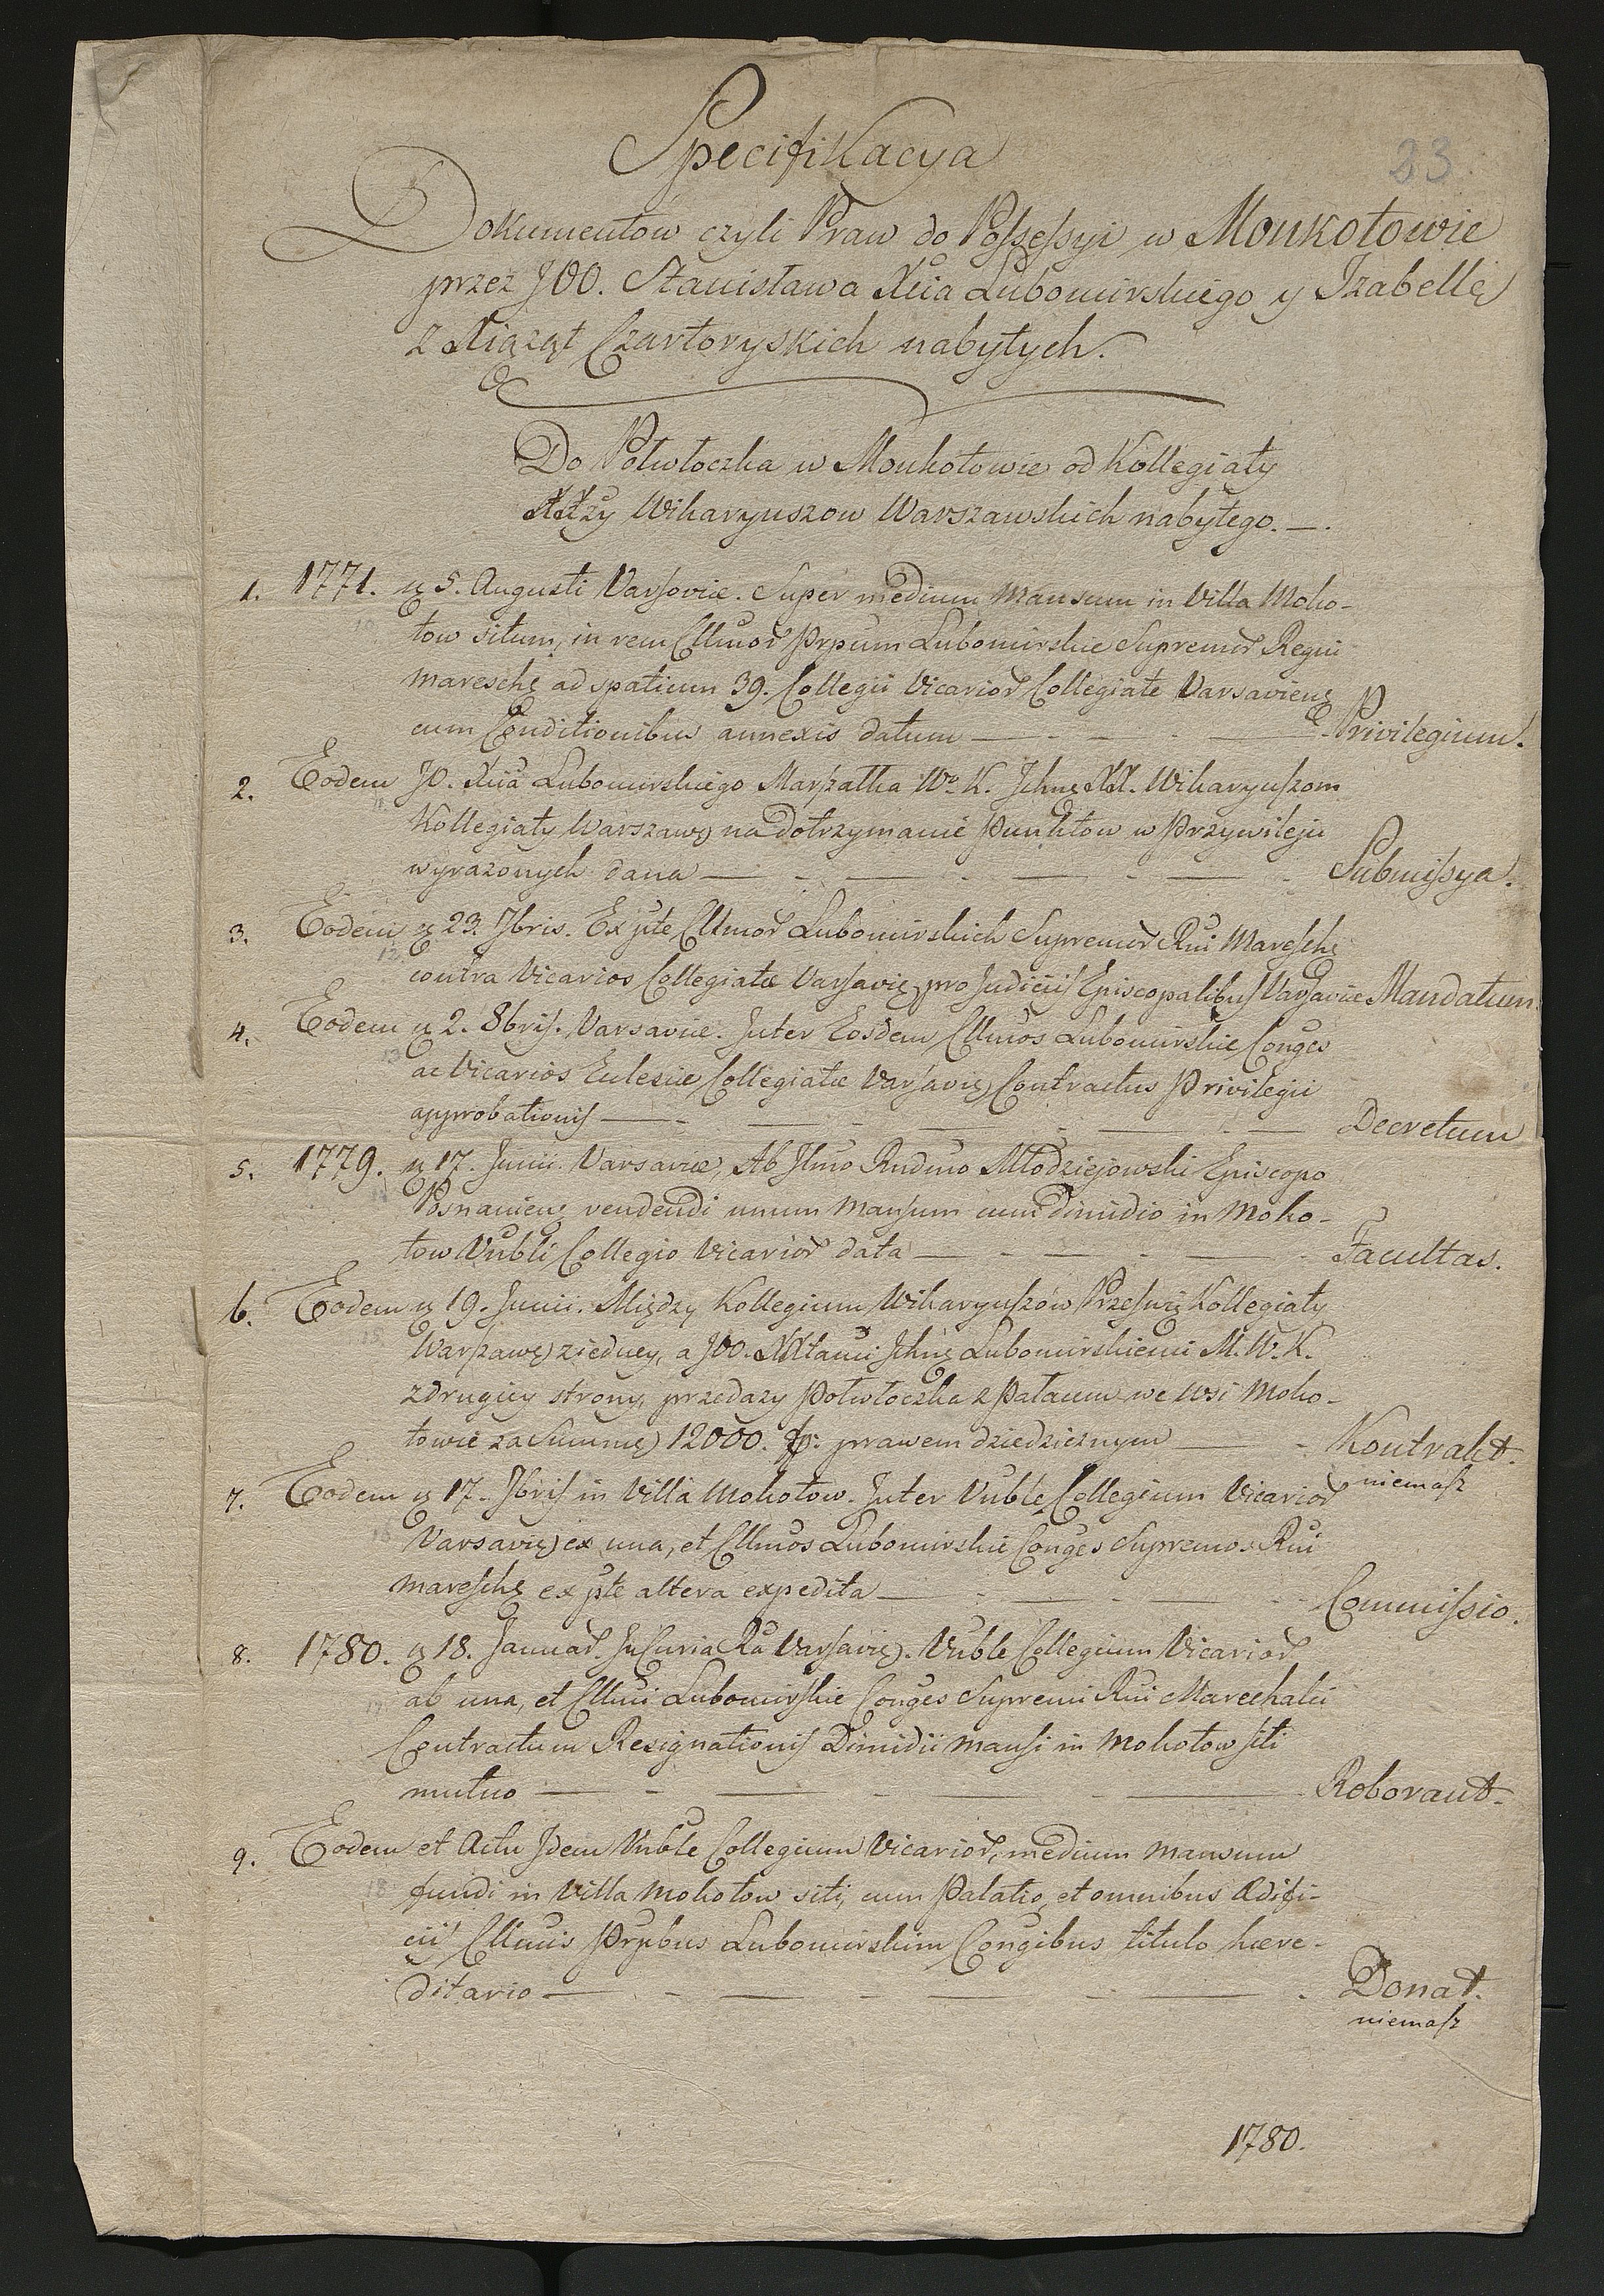 Specifikacya
23
Dokumentow czyli Praw do Possessyi w Monkotowie
przez JOO. Stanisława Xcia Lubomirskiego y Izabellę
z Xiążąt Czartoryskich nabytych.
Do Połwłoczka w Monkotowie od Kollegiaty
XXży Wikaryuszow Warszawskich nabytego. —.
1. 1771. 5. Augusti Varsoviæ. Super medium Mansum in Villa Moko-
tow situm, in rem Cllmor Prpum Lubomirskie Supremor Regni
Maresch ad spatium 39. Collegii Vicarior Collegiate Varsaviens
cum Conditionibus annexis datum — Privilegium.
2. Eodem JO. Xcia Lubomirskiego Marszałka W. K. Ichm XX. Wikaryuszom
Kollegiaty Warszaws na dotrzymanie Punktow w Przywileju
wyrazonych dana — Submissya.
3. Eodem 23. 7bris. Ex pte Cllmor Lubomirskich Supremor Rni Maresch
contra Vicarios Collegiatæ Varsavie pro Judiciis Episcopalibus Varsaviæ Mandatum.
4. Eodem 2. 8bris. Varsaviæ. Inter Eosdem Cllmos Lubomirskie Conges
ac Vicarios Eclesiæ Collegiatæ Varsavie Contractus Privilegii
approbationis — Decretum
5. 1779. 17. Junii. Varsaviæ, Ab Illmo Rndmo Młodziejowski Episcopo
Posnaniens vendendi unum Mansum cum dimidio in Moko-
tow Vnbli Collegio Vicarior data — Facultas.
6. Eodem 19. Junii. Między Kollegium Wikaryuszow Przeswie Kollegiaty
Warszaws z iedney, a JOO. XXtami Ichm Lubomirskiemi M. W. K.
z drugiey strony, przedazy Połwłoczka z Pałacem we wsi Moko-
towie za Summę 12000. fp: prawem dziedzicznym — Kontrakt.
niemasz
7. Eodem 17. 7bris in Villa Mokotow. Inter Vnble Collegium Vicarior
Varsavie ex una, et Cllmos Lubomirskie Conges Supremos Rni
Maresch ex pte altera expedita — Commissio.
8. 1780. 18. Januar. In Curia Ra Varsavie. Vnble Collegium Vicarior
ab una, et Cllmi Lubomirskie Conges Supremi Rni Marechalci
Contractum Resignationis Dimidii mansi in Mokotow siti
mutuo — Roborant.
9. Eodem et Actu Idem Vnble Collegium Vicarior, medium mansum
fundi in Villa Mokotow siti, cum Palatio, et omnibus Ædifi-
cii Cllmis Prpbus Lubomirskim Congibus titulo hære-
ditario — Donat.
niemasz
1780.